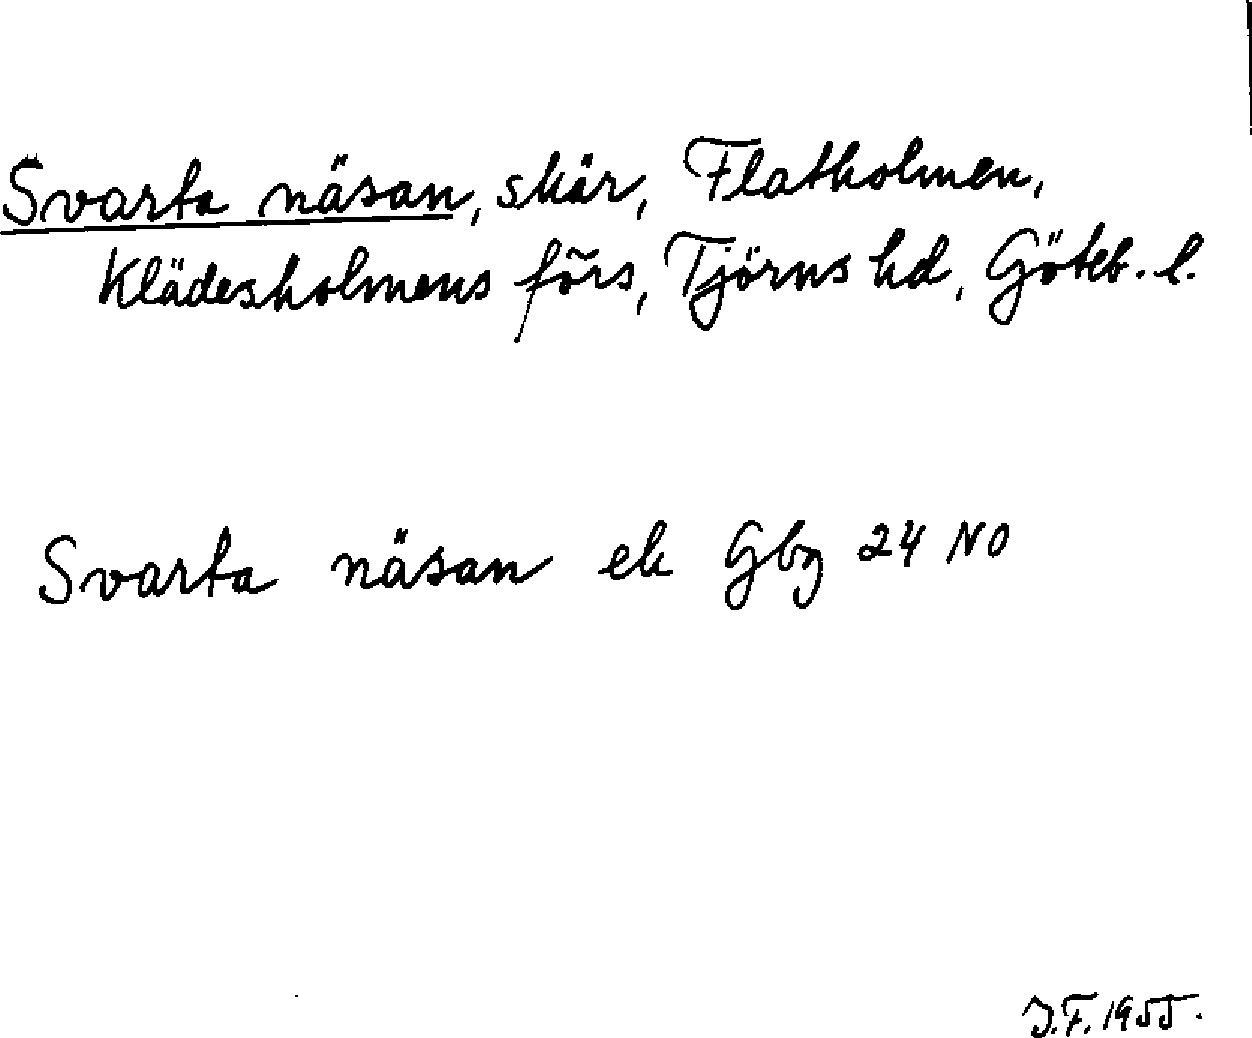 Svarta näsan, skär, Flatholmen,
Klädesholmens förs, Tjörns hd, Göteb. l.
Svarta näsan ek Gbg 24 NO
J.F. 1955.